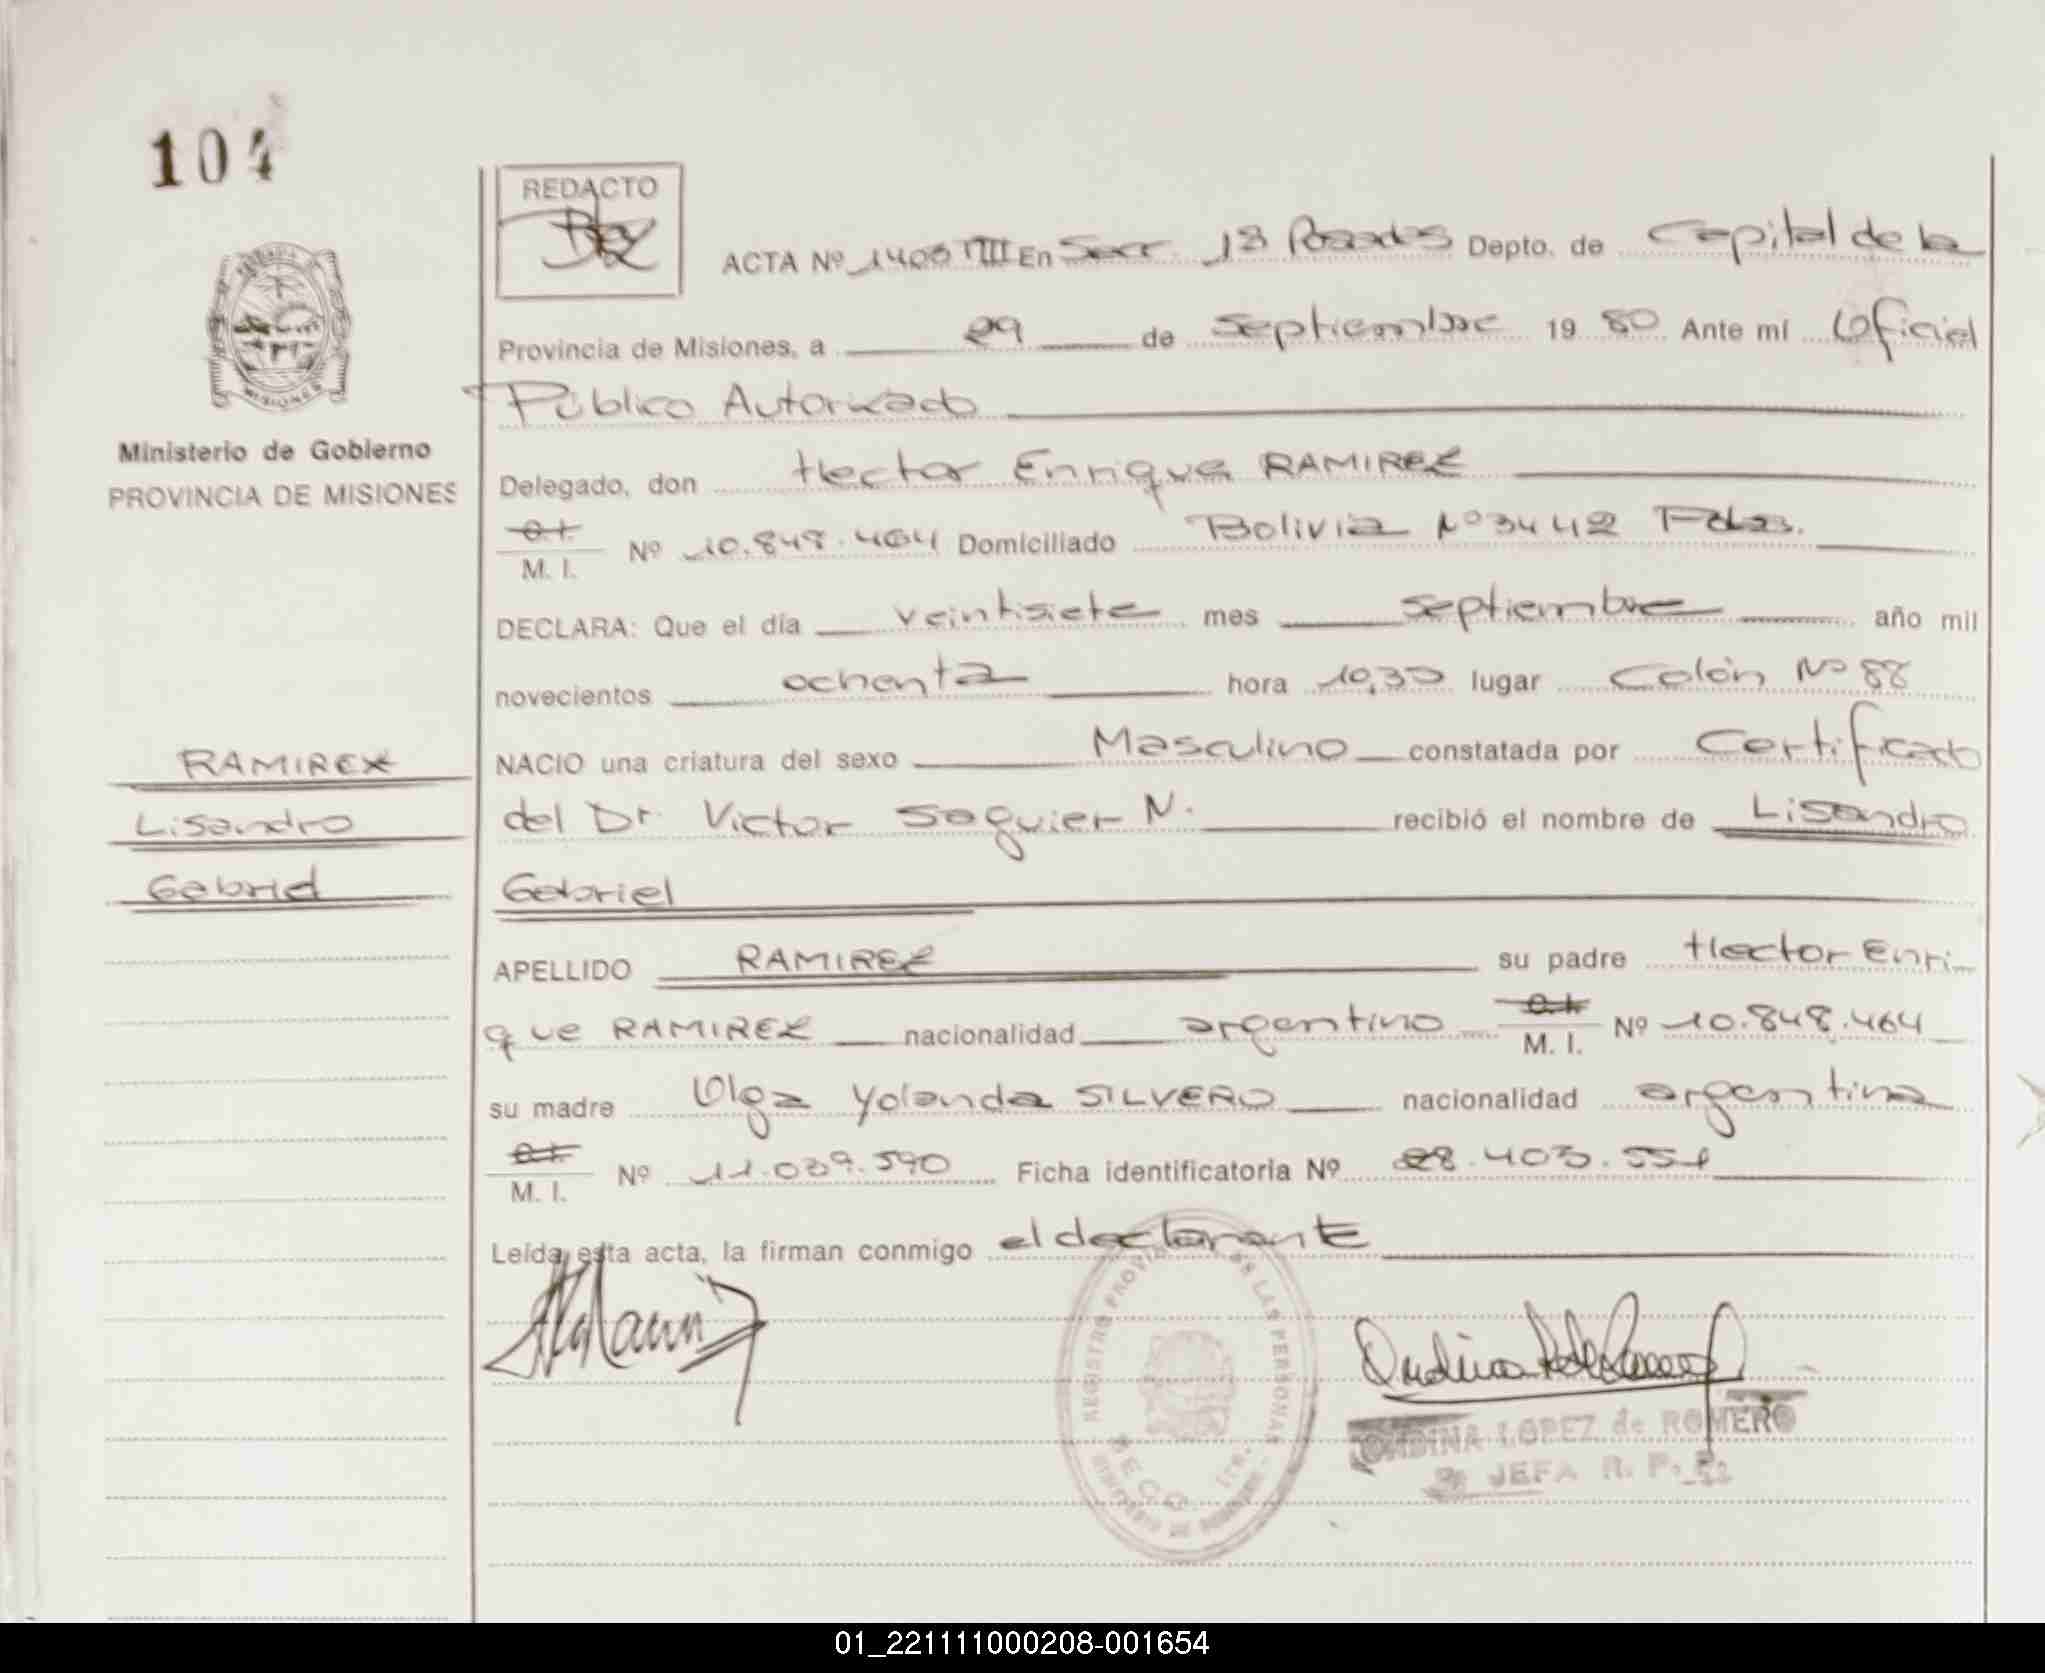 104
REDACTO
ACTA Nº 1403 TIII En Secc. 1ª Posadas Depto. de Capital de la
Provincia de Misiones, a 29 de septiembre 1980 Ante mí Oficial
Público Autorizado
Ministerio de Gobierno
PROVINCIA DE MISIONES
Delegado, don Hector Enrique RAMIREZ
C.I.
M. I. Nº 10.848.464 Domiciliado Bolivia Nº 3442 Pdas.
DECLARA: Que el día veintisiete mes septiembre año mil
novecientos ochenta hora 10,35 lugar Colón Nº 88
RAMIREZ
Lisandro
Gabriel
NACIO una criatura del sexo Masculino constatada por Certificado
del Dr. Victor Saguier N. recibió el nombre de Lisandro
Gabriel
APELLIDO RAMIREZ su padre Hector Enri-
que RAMIREZ nacionalidad argentino C.I.
M. I. Nº 10.848.464
su madre Olga Yolanda SILVERO nacionalidad argentina
C.I.
M. I. Nº 11.039.590 Ficha identificatoria Nº 28.403.551
Leída esta acta, la firman conmigo el declarante
REGISTRO PROVINCIAL DE LAS PERSONAS
MINISTERIO DE GOBIERNO
ONDINA LOPEZ de ROMERO
JEFA R. P.
01_221111000208-001654